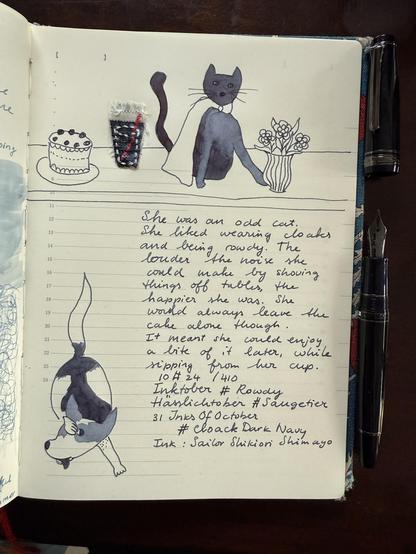 [ ]
She was an odd cat.
She liked wearing cloaks
and being rowdy. The
louder the noise she
could make by shoving
things off tables, the
happier she was. She
would always leave the
cake alone though.
It meant she could enjoy
a bite of it later, while
sipping from her cup.
10#24 /410
Inktober # Rowdy
Hässlichtober #Saugetier
31 Inks Of October
# Cloack Dark Navy
Ink: Sailor Shikiori Shimayo
11
12
13
14
15
16
17
18
19
20
21
22
23
24